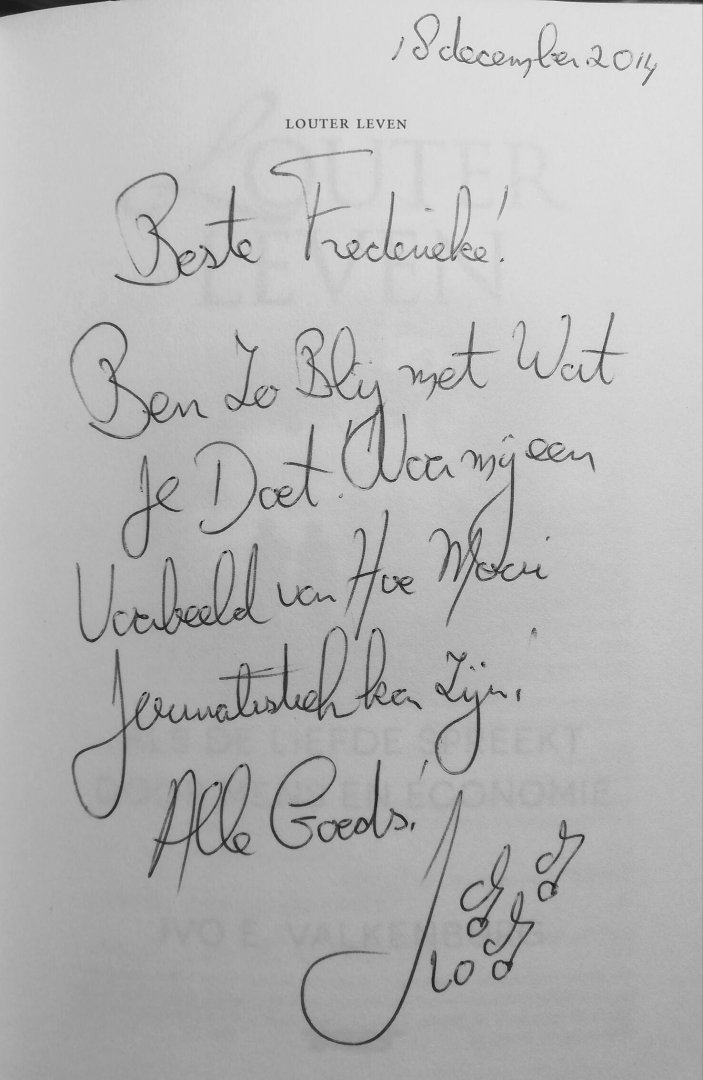 18 december 2014
LOUTER LEVEN
Beste Frederieke!
Ben Zo Blij met Wat
Je Doet. Voor mij een
Voorbeeld van Hoe Mooi
Journalistiek kan Zijn!
Alle Goeds!
Ivo
LOUTER
LEVEN
ALS DE LIEFDE SPREEKT
EN ECONOMIE
IVO E. VALKENBURG